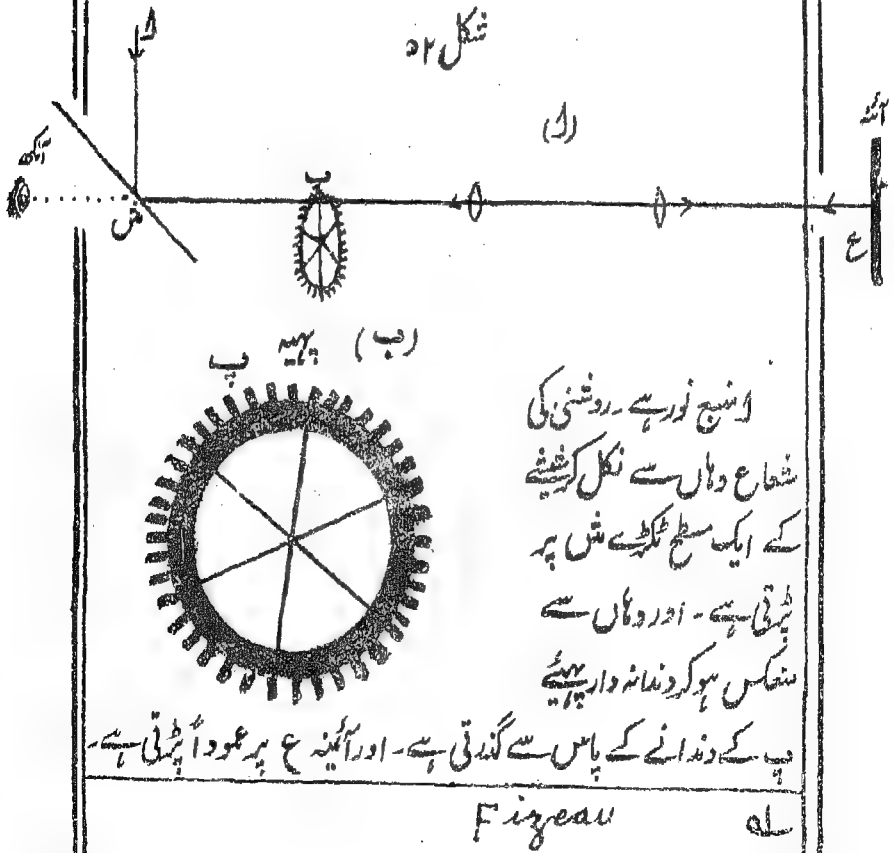 شکل ۵۲
ا
(ا)
آئینہ
آنکھ
پ
ش
ع
(ب) پہیہ پ
ا منبع نور ہے۔ روشنی کی
شعاع وہاں سے نکل کر شیشے
کے ایک مسطح ٹکڑے ش پر
پڑتی ہے۔ اور وہاں سے
منعکس ہو کر دندانہ دار پہیئے
پ کے دندانے کے پاس سے گذرتی ہے۔ اور آئینہ ع پر عموداً پڑتی ہے۔
Fizeau ؎۱